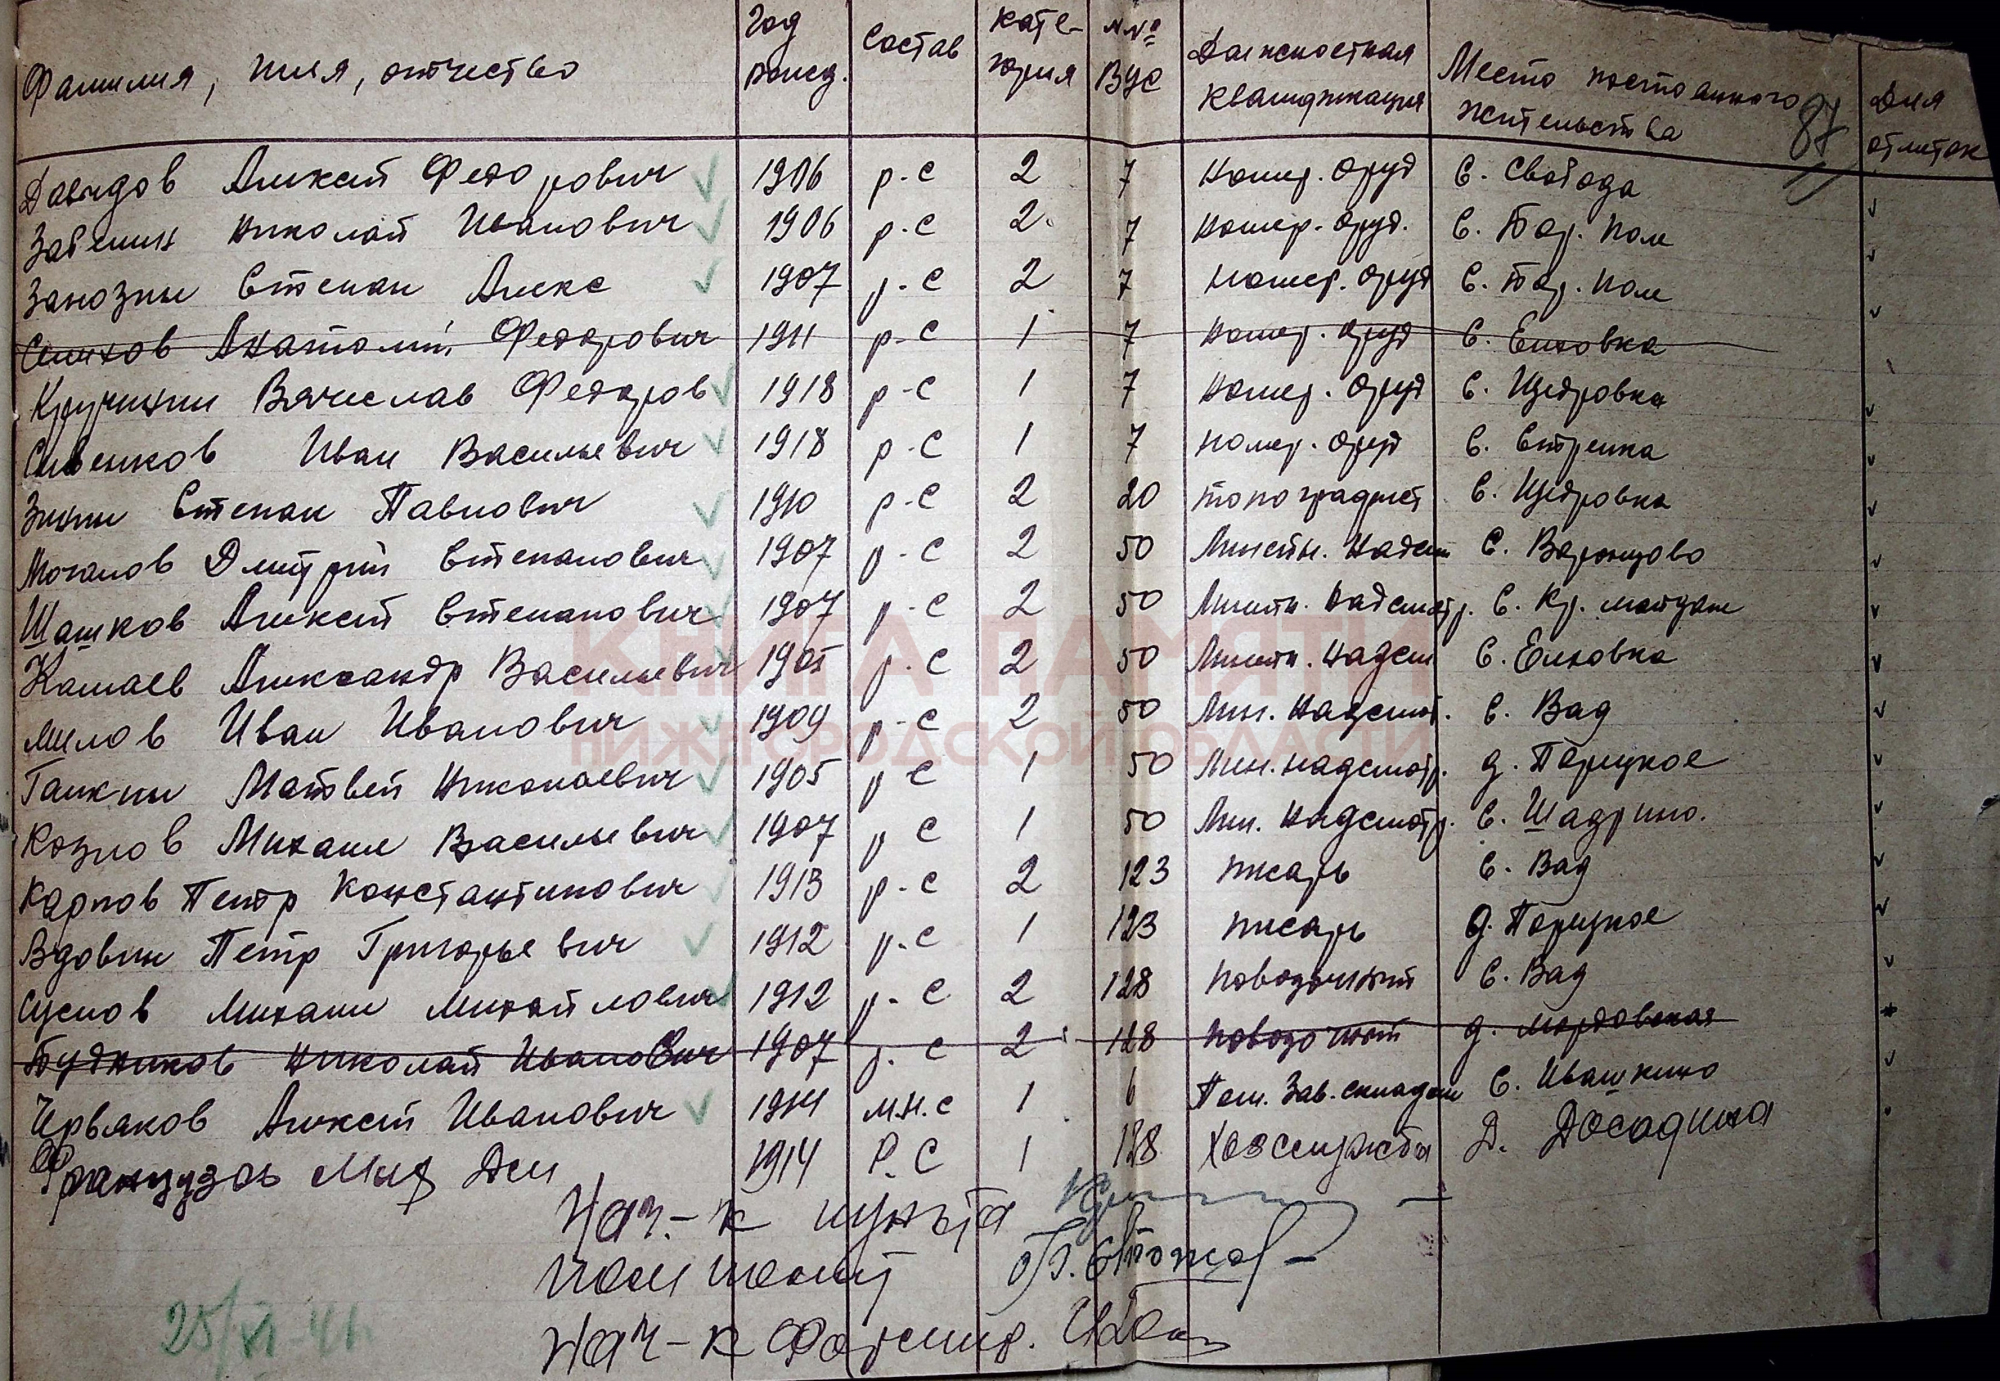 Фамилия, имя, отчество Год рожд. Состав Категория №№ ВУС Должностная квалификация Место постоянного жительства Для отметок
87
Давыдов Алексей Федорович 1906 р-с 2 7 Номер. оруд с. Свобода
Николай Иванович 1906 р-с 2 7 Номер. оруд. с. Бор. Поле
Занозин Степан Алекс 1907 р-с 2 7 Номер. оруд с. Бор. Поле
Анатолий Федорович 1911 р-с 1 7 Номер. оруд с. Елховка
Кручинин Вячеслав Федоров 1918 р-с 1 7 Номер. оруд с. Щедровка
Иван Васильевич 1918 р-с 1 7 номер. оруд с. Стрелка
Зинин Степан Павлович 1910 р-с 2 20 топографист с. Щедровка
Мочалов Дмитрий Степанович 1907 р-с 2 50 Линейн. Надсм с. Воронцово
Шашков Алексей Степанович 1907 р-с 2 50 Линейн. Надсмотр. с. Кр. майдан
Камаев Александр Васильевич 1905 р-с 2 50 Линейн. Надсм с. Елховка
Милов Иван Иванович 1909 р-с 2 50 Лин. Надсмот. с. Вад
Галкин Матвей Николаевич 1905 р-с 1 50 Лин. надсмотр. д. Порецкое
Козлов Михаил Васильевич 1907 р с 1 50 Лин. Надсмотр. с. Шадрино.
Карпов Петр Константинович 1913 р-с 2 123 писарь с. Вад
Вдовин Петр Григорьевич 1912 р-с 1 123 писарь д. Порецкое
Суслов Михаил Михайлович 1912 р-с 2 128 повозочный с. Вад
Будников Николай Иванович 1907 р-с 2 128 повозочный д. Мордовская
Червяков Алексей Иванович 1914 м.н.с 1 6 Пом. Зав. складом с. Ивашкино
Французов Мих Дем 1914 Р.С 1 128 Хозслужбы Д. Досадина
Нач-к пункта
Нач-к
25/XI-41.
КНИГА ПАМЯТИ
НИЖЕГОРОДСКОЙ ОБЛАСТИ